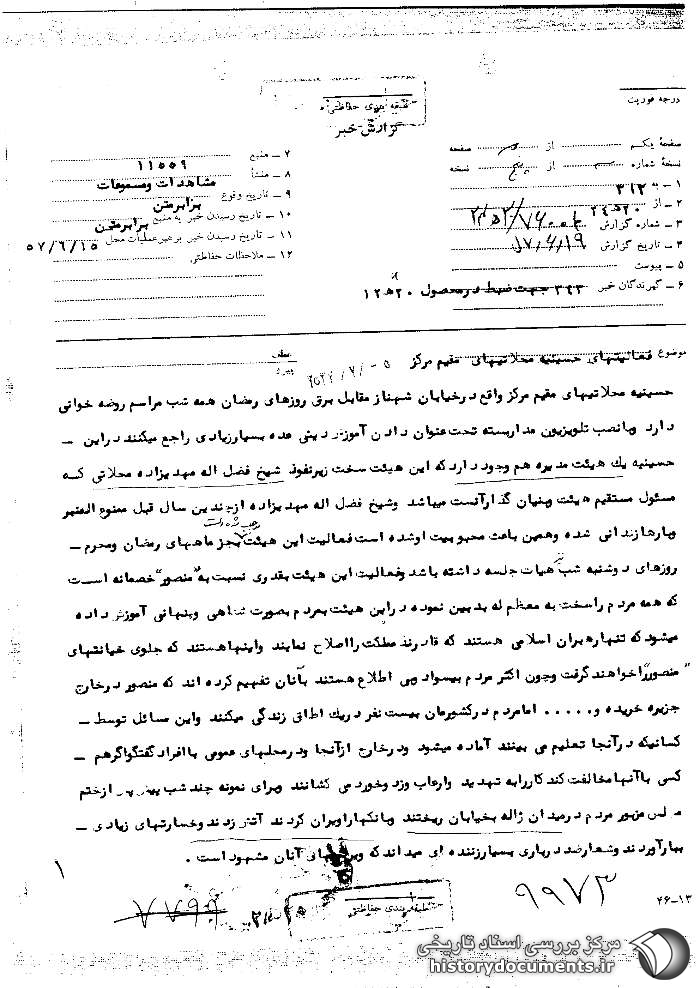 طبقه بندی حفاظتی
گزارش خبر
درجه فوریت
صفحهٔ یکم از صفحه
نسخهٔ شماره از پنج نسخه
۱ – به ۳۱۲
۲ – از ۲۰ ه‍ ۲۴
۳ – شماره گزارش
۴ – تاریخ گزارش ۵۷/۶/۱۹
۵ – پیوست
۶ – گیرندگان خبر ۳۴۳ جهت ضبط در محصول ۲۰ ه‍ ۱۲
۷ – منبع ۱۱۵۵۹
۸ – منشأ مشاهدات و مسموعات
۹ – تاریخ وقوع برابر متن
۱۰ – تاریخ رسیدن خبر به منبع برابر متن
۱۱ – تاریخ رسیدن خبر برهبر عملیات محل ۵۷/۶/۱۵
۱۲ – ملاحظات حفاظتی
موضوع فعالیتهای حسینیه محلاتیهای مقیم مرکز
عطف
پیرو
حسینیه محلاتیهای مقیم مرکز واقع در خیابان شهناز مقابل برق روزهای رمضان همه شب مراسم روضه خوانی
دارد و با نصب تلویزیون مداربسته تحت عنوان دادن آموزش دینی عده بسیار زیادی راجع میکنند در این –
حسینیه یک هیئت مدیره هم وجود دارد که این هیئت سخت زیر نفوذ شیخ فضل اله مهدیزاده محلاتی که
مسئول مستقیم هیئت و بنیان گذار آنست میباشد و شیخ فضل اله مهدیزاده از چندین سال قبل ممنوع المنبر
و بارها زندانی شده و همین باعث محبوبیت او شده است فعالیت این هیئت بجز ماههای رمضان و محرم –
روزهای دوشنبه شب نیز هیات جلسه داشته باشد و فعالیت این هیئت بقدری نسبت به "منصور" خصمانه است
که همه مردم را سخت به معظم له بدبین نموده در این هیئت بمردم بصورت شفاهی و پنهانی آموزش داده
میشود که تنها رهبران اسلامی هستند که قادرند مملکت را اصلاح نمایند و اینها هستند که جلوی خیانتهای
"منصور" را خواهند گرفت و چون اکثر مردم بیسواد و بی اطلاع هستند بآنان تفهیم کرده اند که منصور در خارج
جزیره خریده و ..... اما مردم در کشورمان بیست نفر در یک اطاق زندگی میکنند و این مسائل توسط –
کسانیکه در آنجا تعلیم می بینند آماده میشود و در خارج از آنجا و در محلهای عمومی با افراد گفتگو و اگر هم –
کسی با آنها مخالفت کند کار را به تهدید و ارعاب و زد و خورد می کشانند و برای نمونه چند شب پیش پس از ختم
مجلس مزبور مردم در میدان ژاله بخیابان ریختند و بانکها را ویران کردند آتش زدند و خسارتهای زیادی –
ببار آوردند و شعار ضد درباری بسیار زننده ای میداند که ویرانیهای آنان مشهود است .
۱
۹۹۷۳
۷۷۹۹
طبقه بندی حفاظتی
۴۶–۱۳
مرکز بررسی اسناد تاریخی
historydocuments.ir